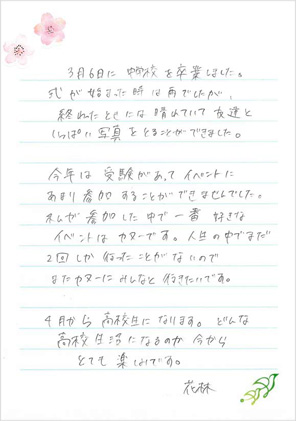 3月6日に 中学校を卒業しました。
式が始まった時は雨でしたが、
終わったときには晴れていて友達と
いっぱい写真をとることができました。
今年は受験があってイベントに
あまり参加することができませんでした。
私が参加した中で一番好きな
イベントはカヌーです。人生の中でまだ
2回しか行ったことがないので
またカヌーにみんなと行きたいです。
4月から高校生になります。どんな
高校生活になるのか今から
とても楽しみです。
花林